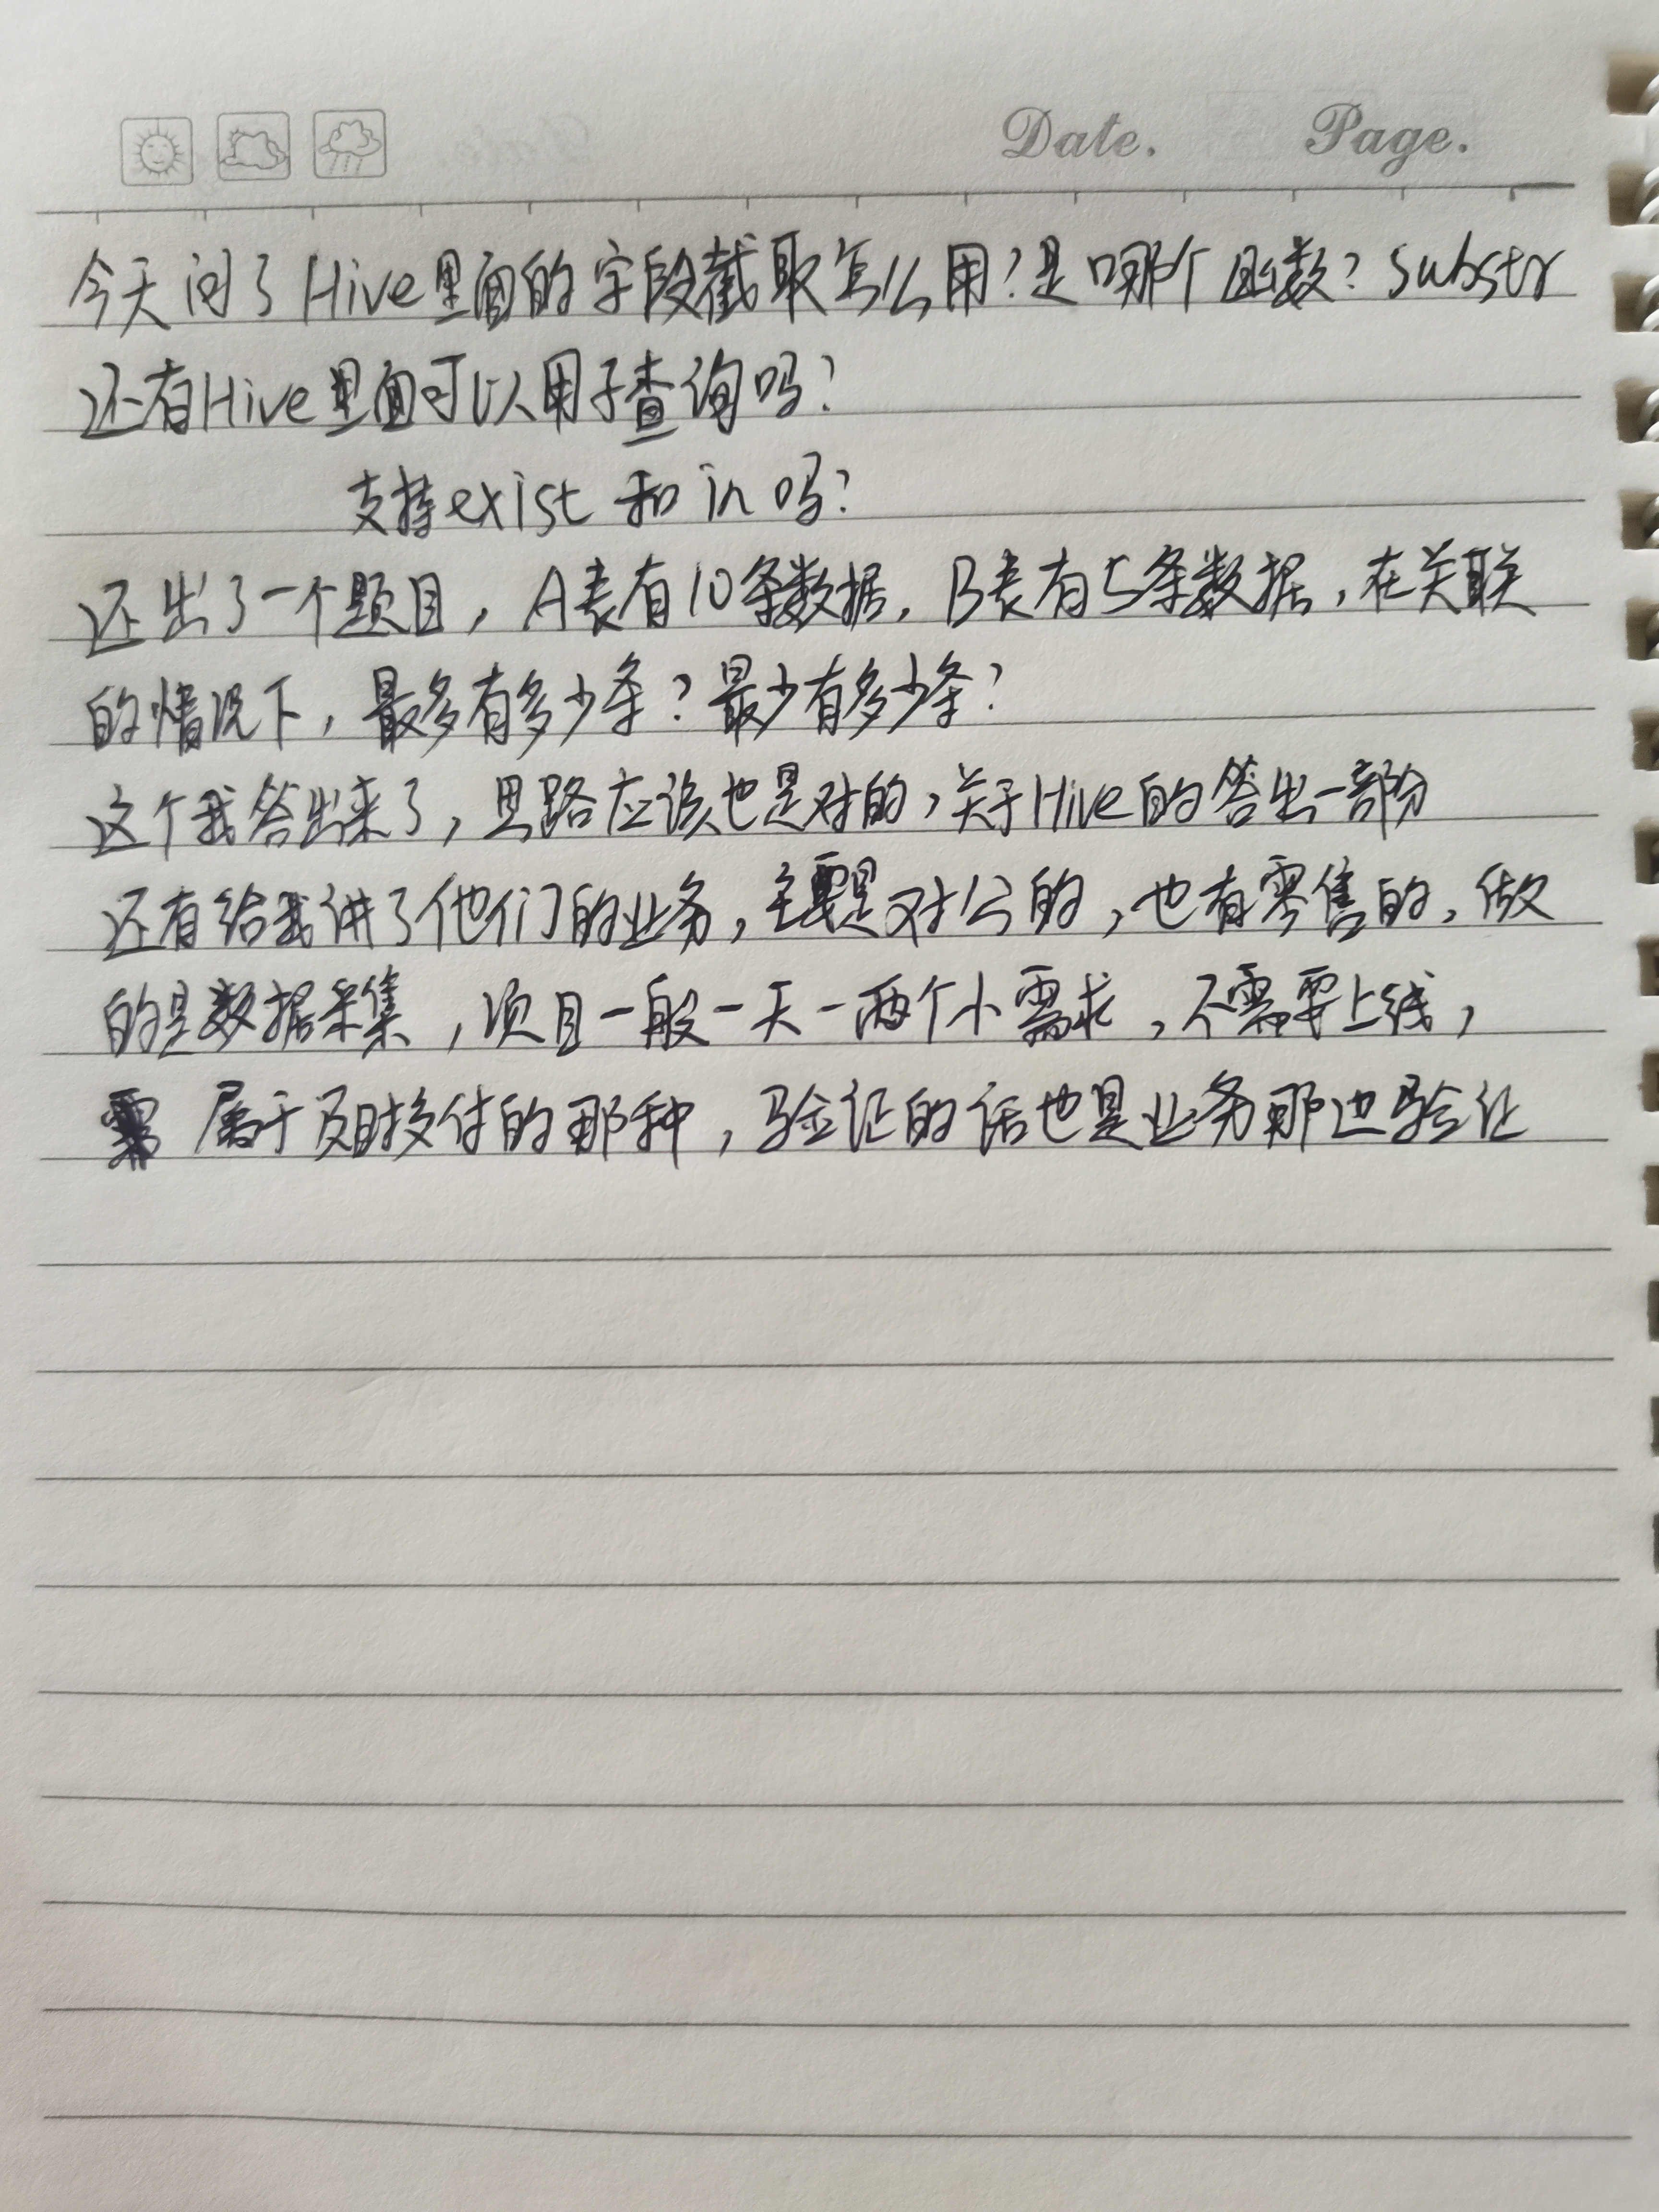 Date. Page.
今天问了Hive里面的字段截取怎么用?是哪个函数? substr
还有Hive里面可以用子查询吗?
支持exist 和 in 吗?
还出了一个题目,A表有10条数据,B表有5条数据,在关联
的情况下,最多有多少条?最少有多少条?
这个我答出来了,思路应该也是对的,关于Hive的答出一部分
还有给我讲了他们的业务,主要是对公的,也有零售的,做
的是数据采集,项目一般一天一两个小需求,不需要上线,
属于及时交付的那种,验证的话也是业务那边验证